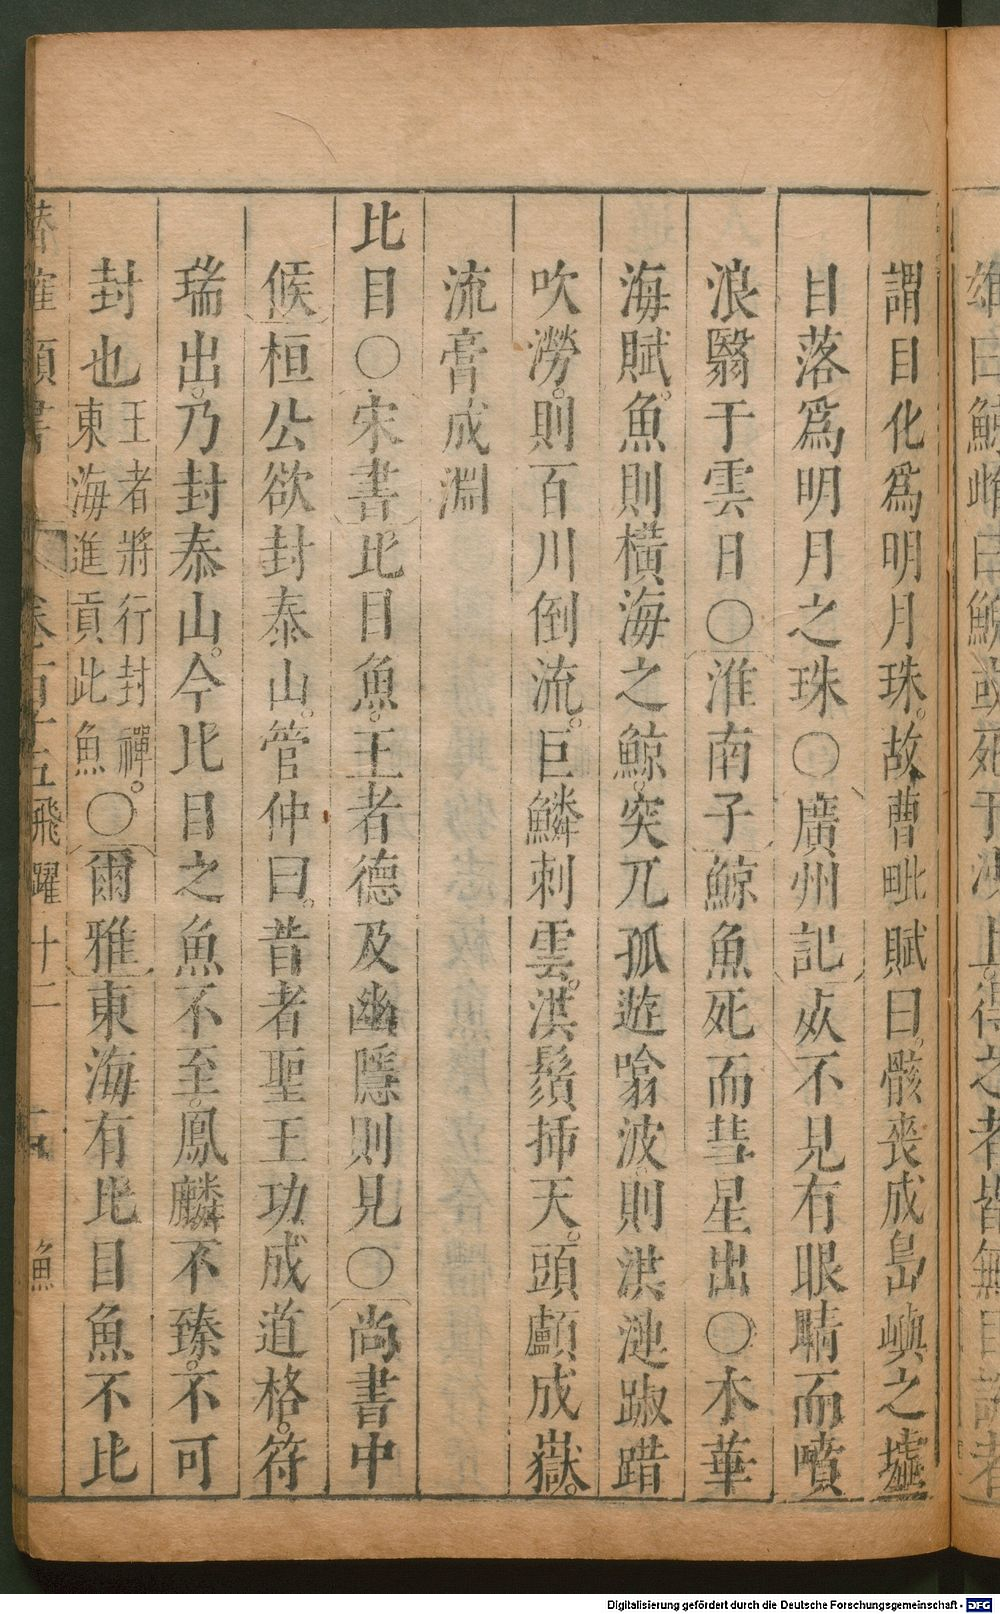 雄曰鯨雌曰鯢或死于沙上。得之者皆無目
謂目化爲明月珠。故曹毗賦曰。骸喪成島嶼之墟
目落爲明月之珠〇廣州記㸃不見有眼睛而噴
浪翳于雲日〇淮南子鯨魚死而彗星出〇木華
海賦。魚則橫海之鯨。突兀孤遊噏波則洪漣踧踖
吹澇。則百川倒流。巨鱗刺雲。洪鬚揷天。頭顱成嶽。
流膏成淵
比目〇宋書比目魚。王者德及幽隱則見〇尚書中
候桓公欲封泰山。管仲曰。昔者聖王功成道格。符
瑞出。乃封泰山。今比目之魚不至。鳳麟不臻。不可
封也王者將行封禪。東海進貢此魚〇爾雅東海有比目魚不比
潛確類書 卷百十五飛躍十二 魚
Digitalisierung gefördert durch die Deutsche Forschungsgemeinschaft - DFG